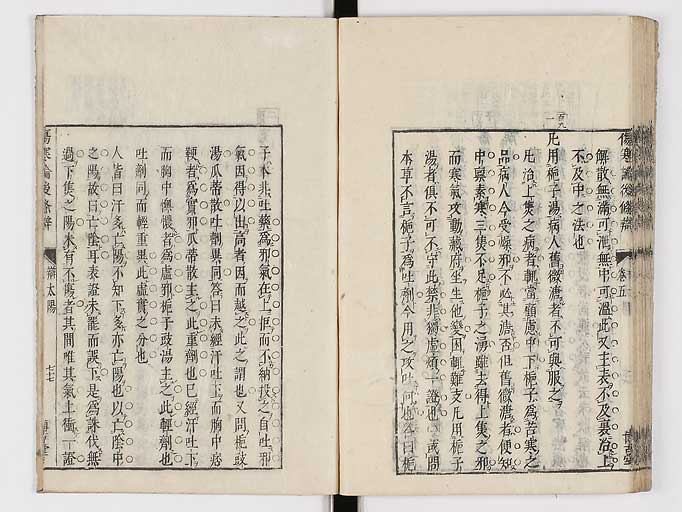 傷寒論後條辨
卷五
解散無滿可泄無中可溫此又主表不及裏治上
不及中之法也
百九一
凡用梔子湯病人舊微溏者不可與服之
凡治上焦之病者輒當顧慮中下梔子為苦寒之
品病人今受燥邪不必其溏否但舊微溏者便知
中氣素寒三焦不足梔子之湧雖去得上焦之邪
而寒氣攻動藏府坐生他變困輒難支凡用梔子
湯者俱不可不守此禁非獨虛煩一證也或問
本草不言梔子為吐劑今用之以吐何也答曰梔
子本非吐藥為邪氣在上拒而不納投之自吐邪
氣因得以出高者因而越之此之謂也又問梔豉
湯瓜蒂散吐劑異同答曰未經汗吐下而胸中痞
鞕者為實邪瓜蒂散主之此重劑也已經汗吐下
而胸中懊憹者為虛邪梔子豉湯主之此輕劑也
吐劑同而輕重異此虛實之分也
人皆曰汗多亡陽不知下多亦亡陽也以亡陰中
之陽故曰亡陰耳表證未罷而誤下是為誅伐無
過下焦之陽未有不傷者其間唯其氣上衝一證
傷寒論後條辨
辨太陽
七七